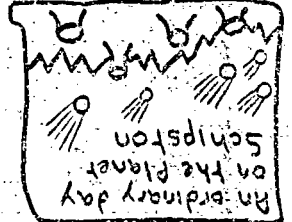 An ordinary day
on the Planet
Schipston